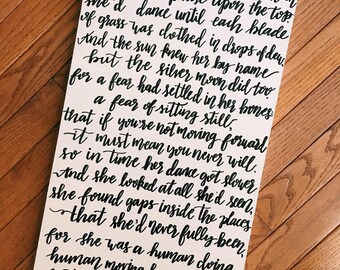 upon the top
she'd dance until each blade
of grass was clothed in drops of dew.
And the sun knew her by name
but the silver moon did too
for a fear had settled in her bones
a fear of sitting still,
that if you're not moving forward
it must mean you never will.
so in time her dance got slower
And she looked at all she'd seen
she found gaps inside the places
that she'd never fully been.
for she was a human doing
human moving